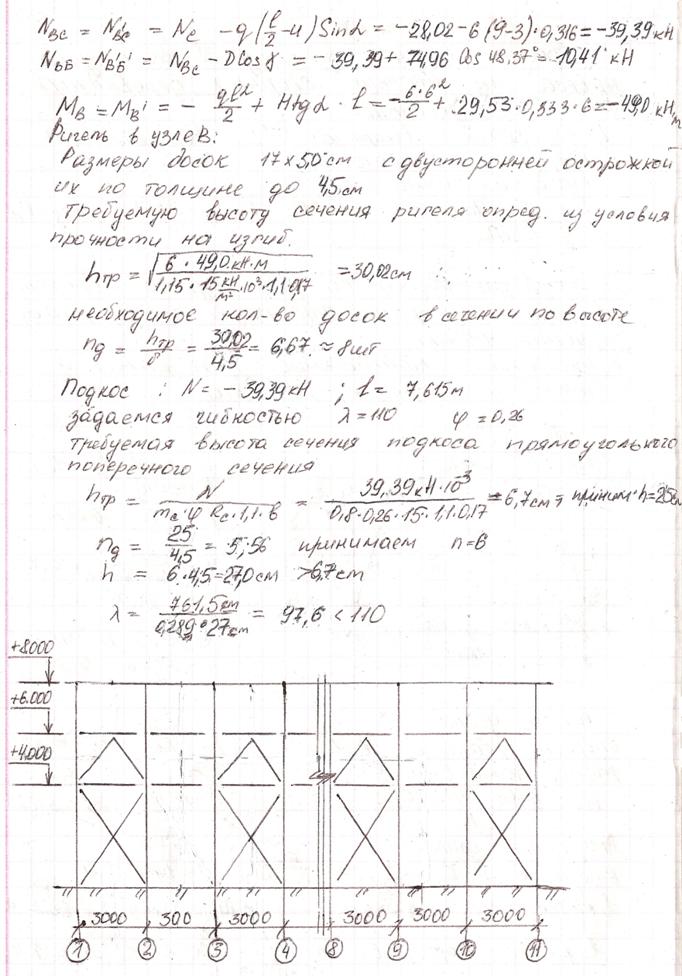 N_BC = N_B'C = N_C - q(l/2 - u) Sin α = -28,02 - 6(9-3)·0,316 = -39,39 кН
N_ВБ = N_В'Б' = N_BC - D Cos γ = -39,39 + 74,96 Cos 48,37° = 10,41 кН
M_B = M_B' = - ql²/2 + H tg α · l = -6·6²/2 + 29,53·0,333·6 = -49,0 кН,м
Ригель в узле В:
Размеры досок 17×5,0 см с двусторонней острожкой
их по толщине до 4,5 см
Требуемую высоту сечения ригеля опред. из условия
прочности на изгиб.
h_тр = √(6·49,0.кН·м / 1,15·15 кН/м² ·10³·1,1·0,17) = 30,02 см
необходимое кол-во досок в сечении по высоте
n_д = h_тр/δ = 30,02/4,5 = 6,67 ≈ 8 шт
Подкос : N = -39,39 кН ; l = 7,615 м
задаемся гибкостью λ = 110 φ = 0,26
требуемая высота сечения подкоса прямоугольного
поперечного сечения
h_тр = N / m_c·φ R_c·1,1·в = 39,39 кН·10⁻³ / 0,8·0,26·15·1,1·0,17 = 6,7 см; приним. h=25см
n_д = 25/4,5 = 5,56 принимаем n=6
h = 6·4,5 = 27,0 см > 6,7 см
λ = 761,5 см / 0,289·27 см = 97,6 < 110
+8.000
+6.000
+4.000
3000 300 3000 3000 3000 3000
1 2 3 4 8 9 10 11